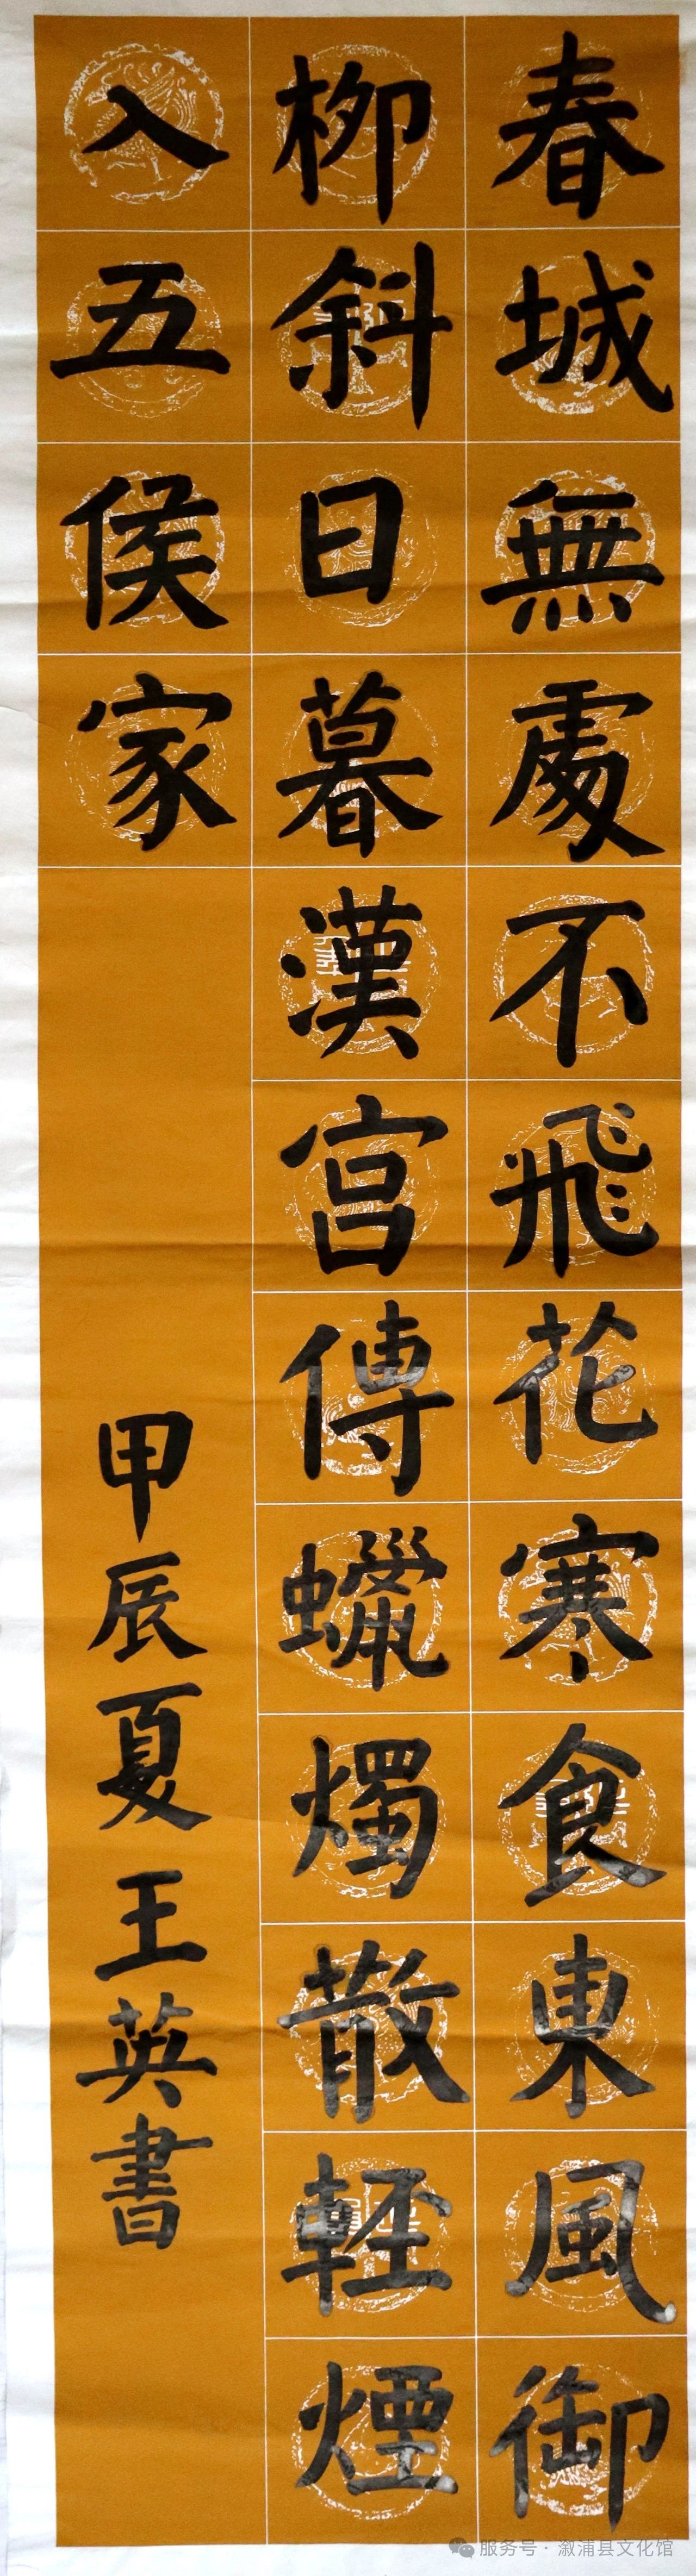 春城無處不飛花寒食東風御
柳斜日暮漢宮傳蠟燭散輕煙
入五侯家
甲辰夏王英書
服务号·溆浦县文化馆